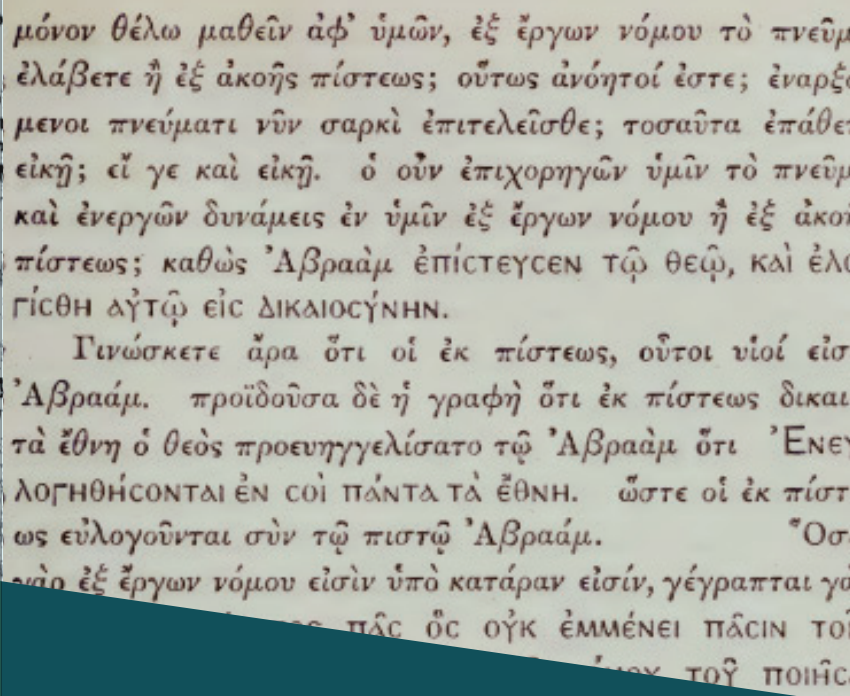 μόνον θέλω μαθεῖν ἀφ' ὑμῶν, ἐξ ἔργων νόμου τὸ
ἐλάβετε ἢ ἐξ ἀκοῆς πίστεως; οὕτως ἀνόητοί ἐστε;
μενοι πνεύματι νῦν σαρκὶ ἐπιτελεῖσθε; τοσαῦτα
εἰκῇ; εἴ γε καὶ εἰκῇ. ὁ οὖν ἐπιχορηγῶν ὑμῖν τὸ
καὶ ἐνεργῶν δυνάμεις ἐν ὑμῖν ἐξ ἔργων νόμου ἢ ἐξ
πίστεως; καθὼς Ἀβραὰμ ἐπίστευσεν τῷ θεῷ, καὶ
γίσθη αὐτῷ εἰς δικαιοσύνην.
Γινώσκετε ἄρα ὅτι οἱ ἐκ πίστεως, οὗτοι υἱοί
Ἀβραάμ. προϊδοῦσα δὲ ἡ γραφὴ ὅτι ἐκ πίστεως
τὰ ἔθνη ὁ θεὸς προευηγγελίσατο τῷ Ἀβραὰμ ὅτι
λογηθήσονται ἐν σοὶ πάντα τὰ ἔθνη. ὥστε οἱ ἐκ
ως εὐλογοῦνται σὺν τῷ πιστῷ Ἀβραάμ.
ἐξ ἔργων νόμου εἰσὶν ὑπὸ κατάραν εἰσίν, γέγραπται
πᾶς ὃς οὐκ ἐμμένει πᾶσιν
τοῦ